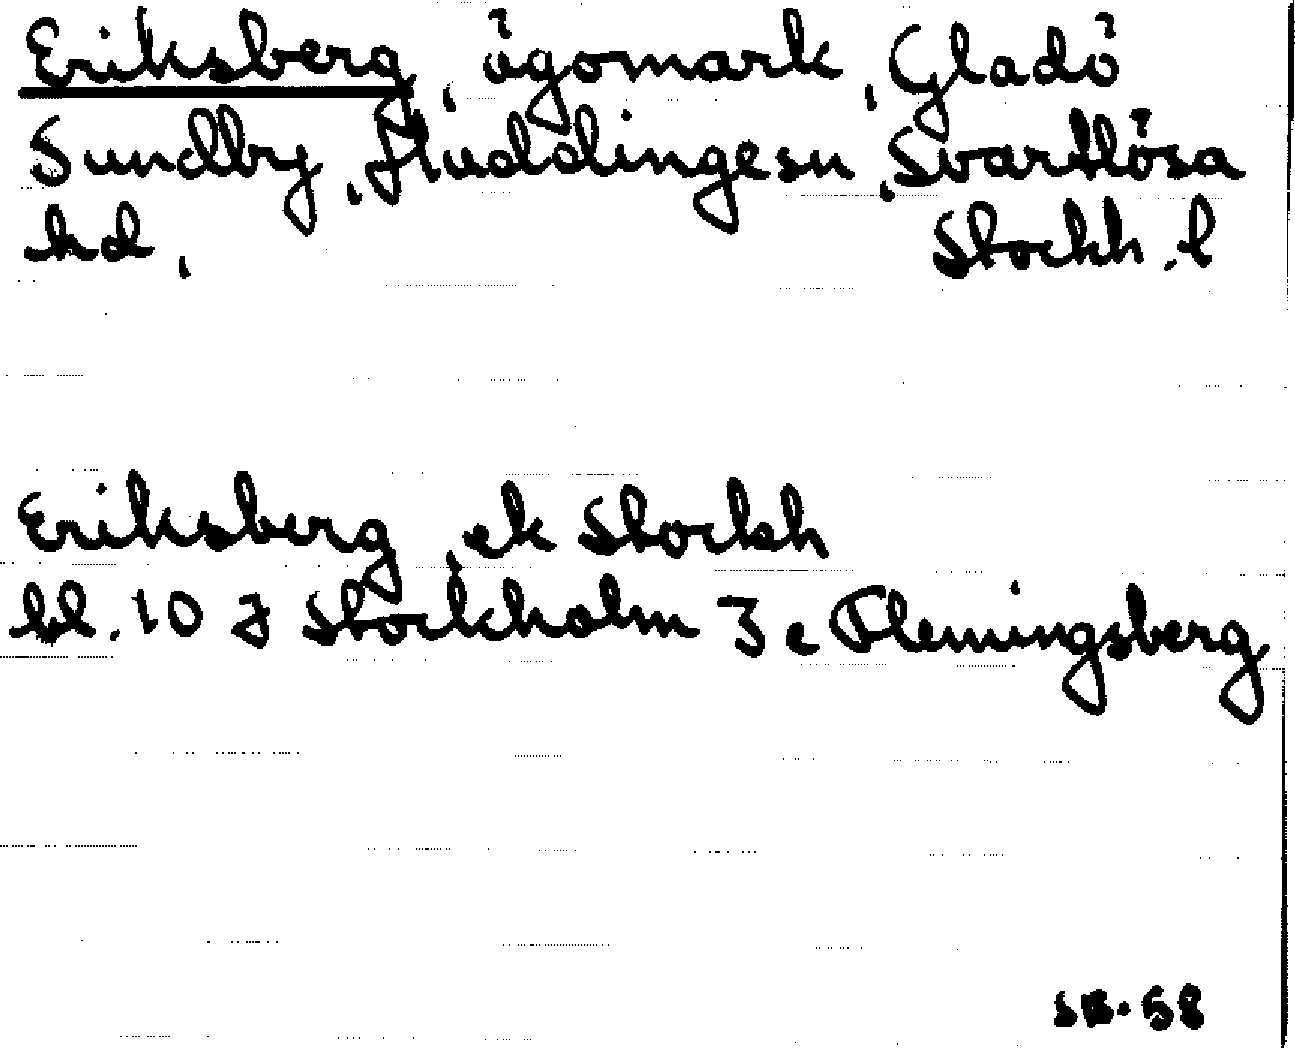 Eriksberg, ägomark, Gladö
Sundby, Huddinge sn, Svartlösa
hd, Stockh. l
Eriksberg, ek Stockh
bl. 10 J Stockholm 3 e Flemingsberg
SB. 58